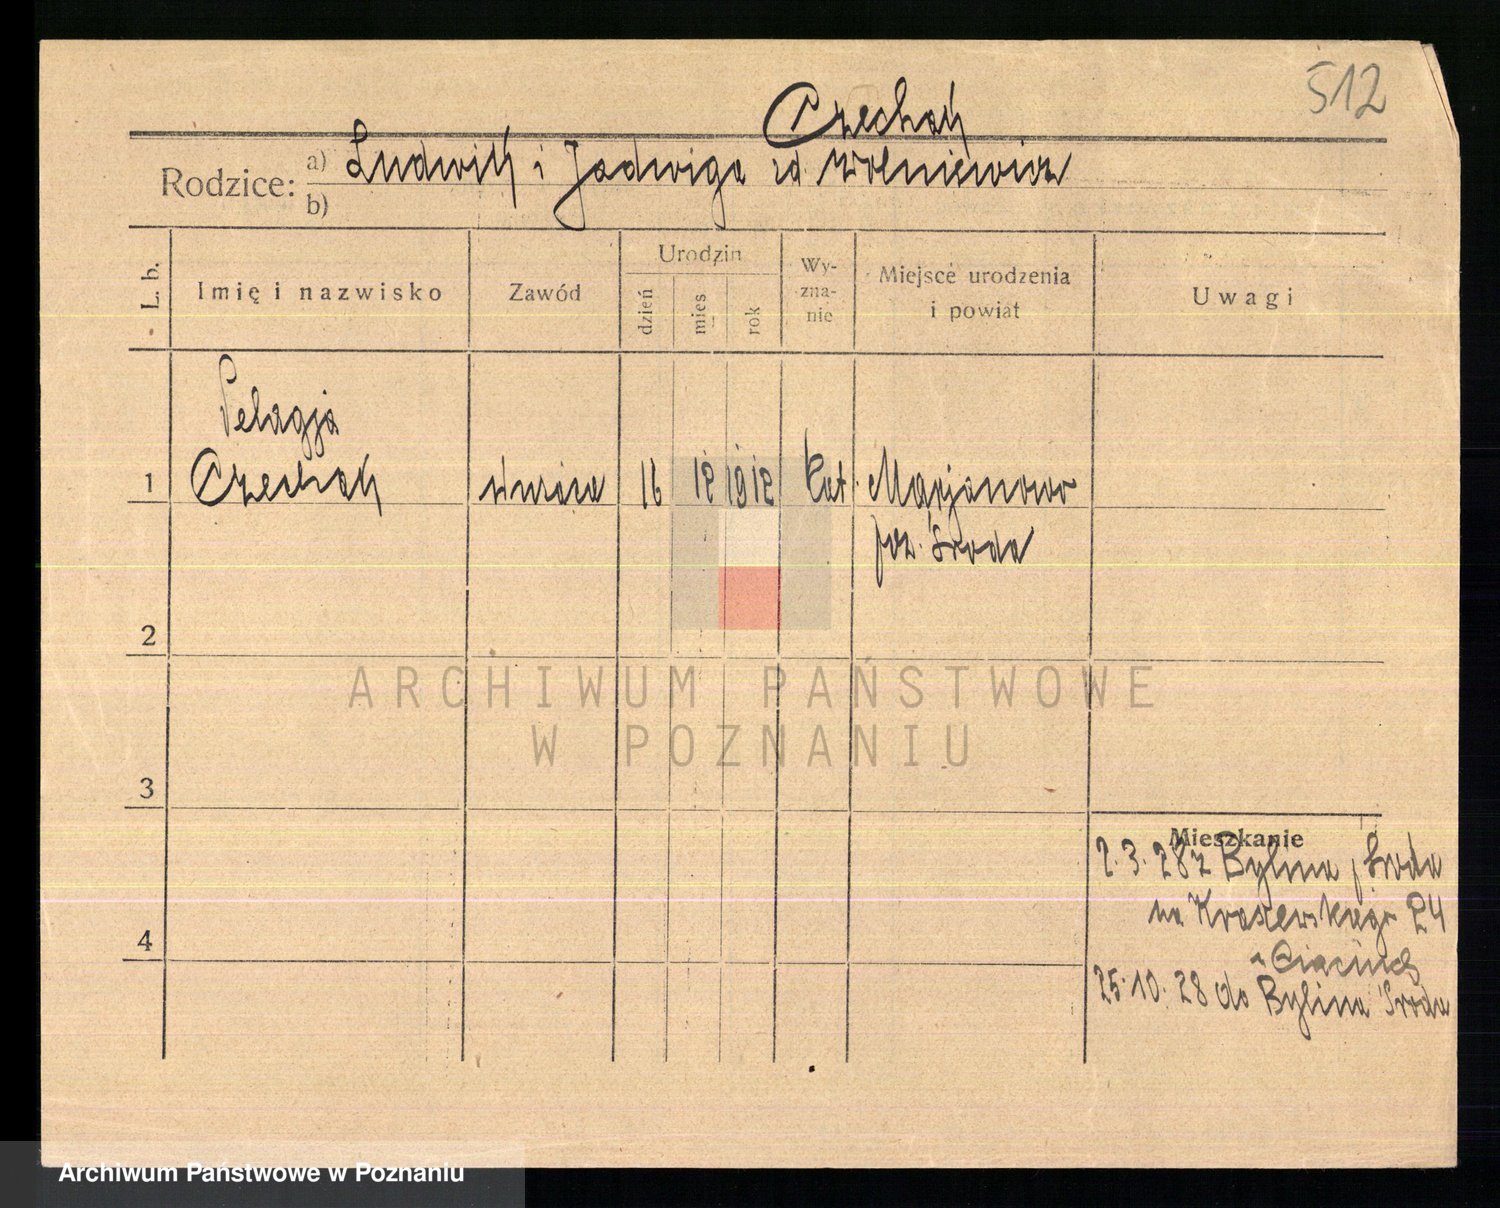 512
Czechak
Rodzice: a) Ludwik i Jadwiga zd. Wolniewicz
b)
L. b.
Imię i nazwisko
Zawód
Urodzin
dzień
mies
rok
Wy-
zna-
nie
Miejsce urodzenia
i powiat
Uwagi
Pelagja
1 Czechak 16 12 1912 kat. Marjanowo
pow. Środa
2
ARCHIWUM PAŃSTWOWE
W POZNANIU
3
Mieszkanie
2.3.28 z Bylina p. Środa
4 na Kraszewskiego 24
25.10.28 do Bylina Środa
Archiwum Państwowe w Poznaniu